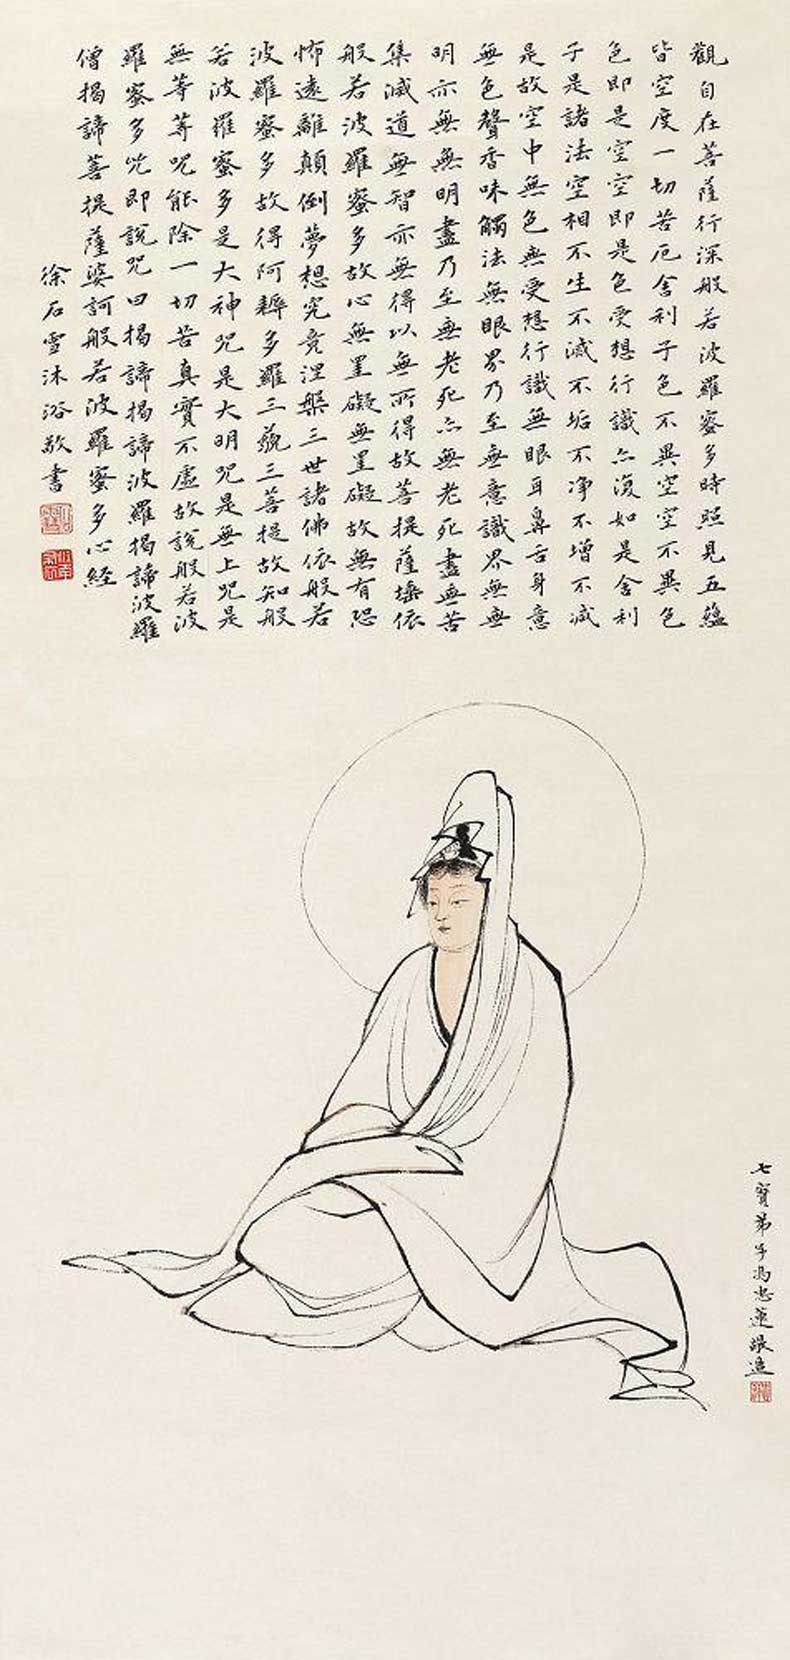 觀自在菩薩行深般若波羅蜜多時照見五蘊
皆空度一切苦厄舍利子色不異空空不異色
色即是空空即是色受想行識亦復如是舍利
子是諸法空相不生不滅不垢不淨不增不減
是故空中無色無受想行識無眼耳鼻舌身意
無色聲香味觸法無眼界乃至無意識界無無
明亦無無明盡乃至無老死亦無老死盡無苦
集滅道無智亦無得以無所得故菩提薩埵依
般若波羅蜜多故心無罣礙無罣礙故無有恐
怖遠離顛倒夢想究竟涅槃三世諸佛依般若
波羅蜜多故得阿耨多羅三藐三菩提故知般
若波羅蜜多是大神咒是大明咒是無上咒是
無等等咒能除一切苦真實不虛故說般若波
羅蜜多咒即說咒曰揭諦揭諦波羅揭諦波羅
僧揭諦菩提薩婆訶般若波羅蜜多心經
徐石雪沐浴敬書
七寶弟子馮忠蓮造